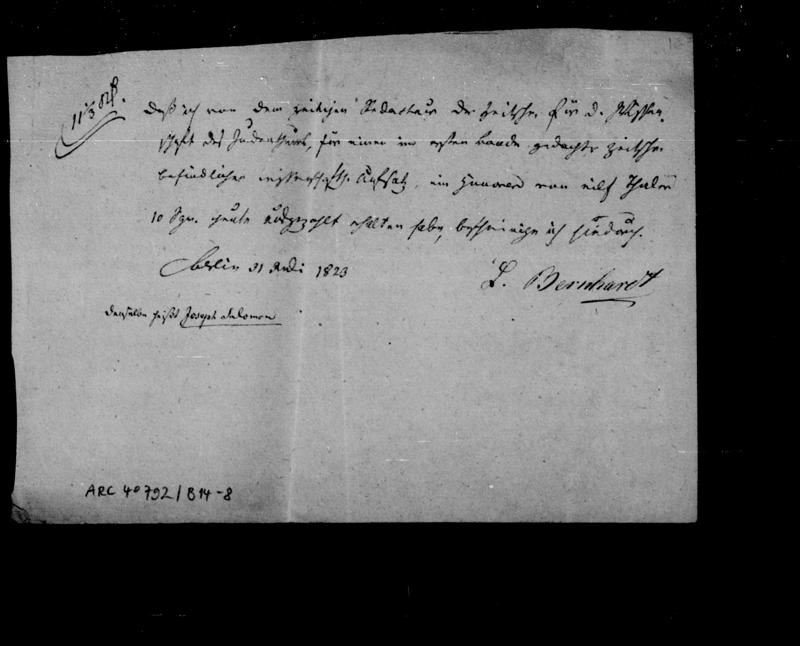 11 1/3 Rth.
Daß ich von dem zeitigen Redacteur der Zeitschr. für d. Wissen-
schaft des Judenthums, für einen im ersten Bande gedachter Zeitschr.
befindlichen wissenschaftl. Aufsatz, ein Honorar von eilf Thalern
10 Sgr. heute ausgezahlt erhalten habe, bescheinige ich hiedurch.
Berlin 31 1823
L. Bernhardt
Derselbe heißt Joseph Salomon
ARC 4o 792/B14-8